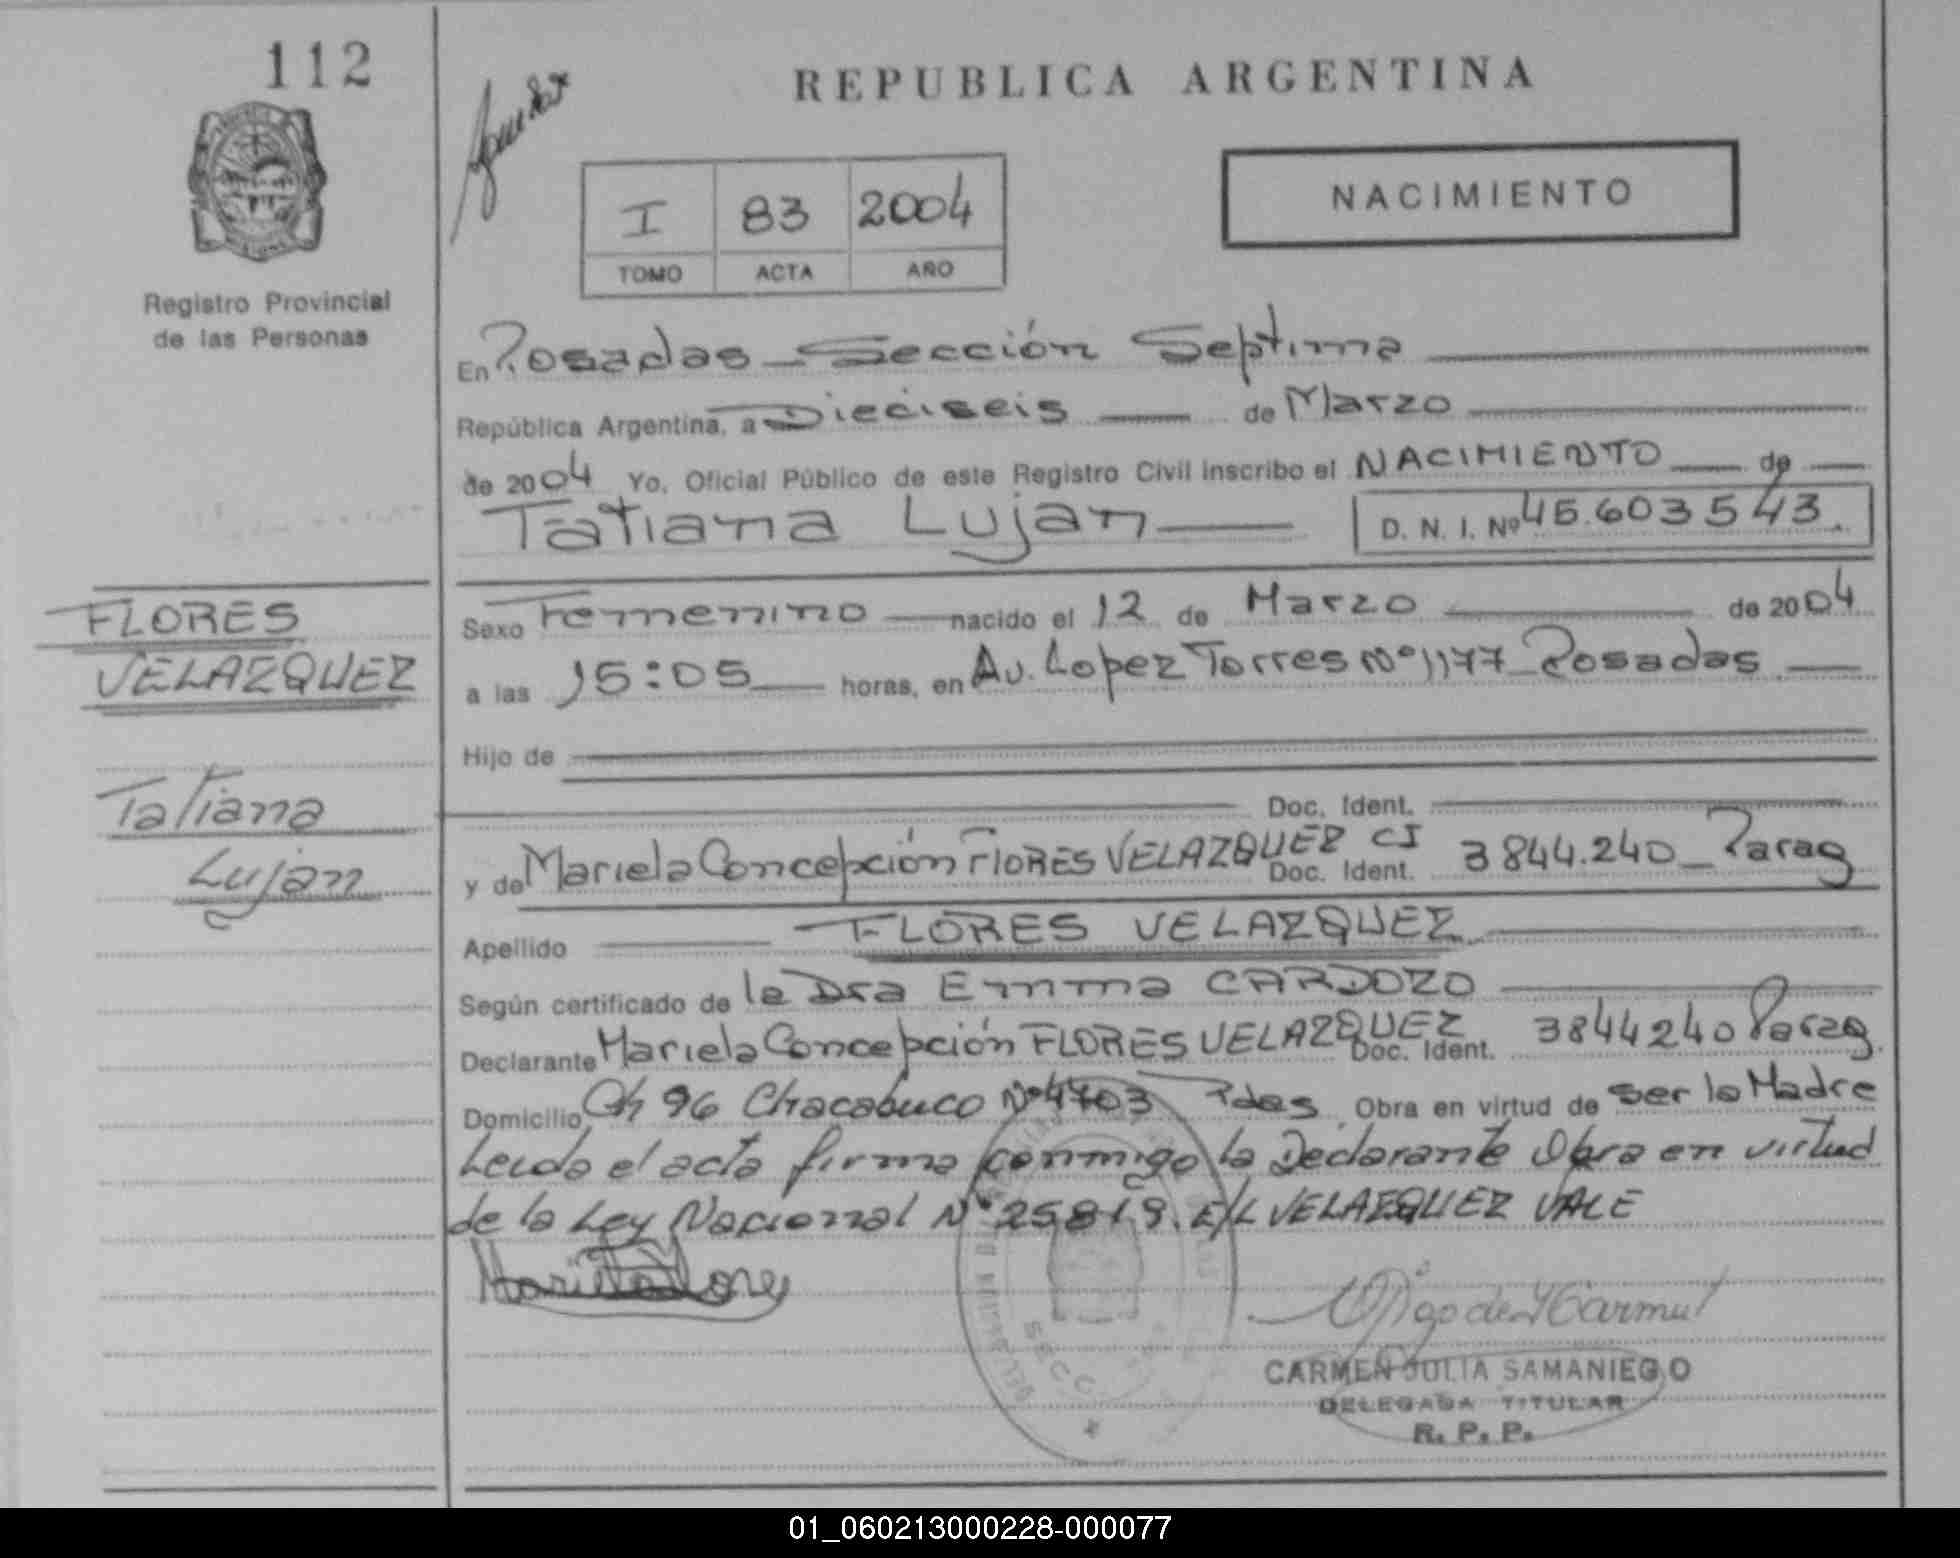 112
REPUBLICA ARGENTINA
I 83 2004
TOMO ACTA AÑO
NACIMIENTO
Registro Provincial
de las Personas
En Posadas - Sección Septima
República Argentina, a Dieciseis de Marzo
de 2004 Yo, Oficial Público de este Registro Civil inscribo el NACIMIENTO de
Tatiana Lujan D. N. I. Nº 45.603543
FLORES
VELAZQUEZ
Tatiana
Lujan
Sexo Femenino nacido el 12 de Marzo de 2004
a las 15:05 horas, en Av. Lopez Torres Nº 1177 - Posadas
Hijo de
Doc. Ident.
y de Mariela Concepción FlORES VELAZQUEZ Doc. Ident. CI 3844.240 - Parag
Apellido FLORES VELAZQUEZ
Según certificado de la Dra Emma CARDOZO
Declarante Mariela Concepción FLORES VELAZQUEZ Doc. Ident. 3844240 Parag.
Domicilio Ch 96 Chacabuco Nº 4703 Pdas Obra en virtud de ser la Madre
Leida el acta firma conmigo la Declarante Obra en virtud
de la Ley Nacional Nº 25819. E/L VELAZQUEZ VALE
CARMEN JULIA SAMANIEGO
DELEGADA TITULAR
R. P. P.
01_060213000228-000077